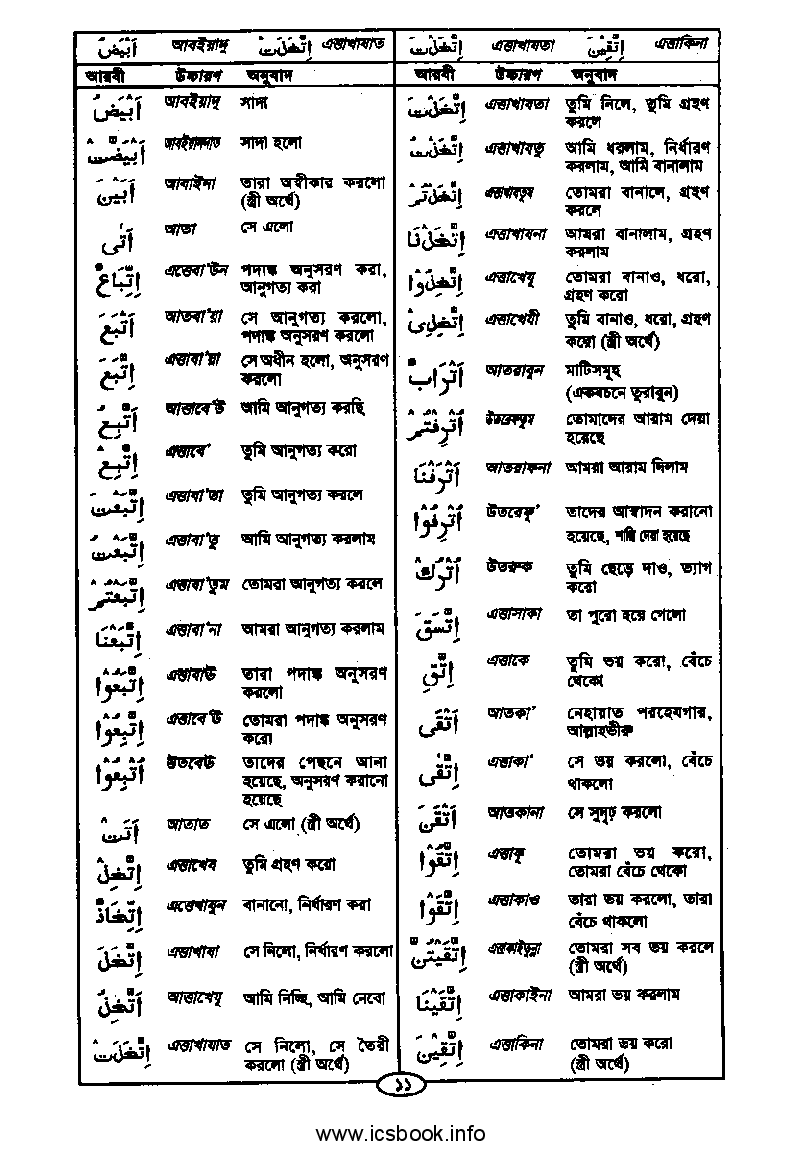 أَبْيَضُ আবইয়াদ্দু اِتَّخَذَتْ এত্তাখাযাত
আরবী উচ্চারণ অনুবাদ
أَبْيَضُ আবইয়াদ্দু সাদা
أَبْيَضَّتْ সাদা হলো
أَبَيْنَ আবাইনা তারা অস্বীকার করলো
(স্ত্রী অর্থে)
أَتَى আতা সে এলো
اِتِّبَاعٌ এত্তেবা'উন পদাঙ্ক অনুসরণ করা,
আনুগত্য করা
أَتْبَعَ আতবা'য়া সে আনুগত্য করলো,
পদাঙ্ক অনুসরণ করলো
اِتَّبَعَ এত্তাবা'য়া সে অধীন হলো, অনুসরণ
করলো
أَتَّبِعُ আত্তাবে'উ আমি আনুগত্য করছি
اِتَّبِعْ এত্তাবে' তুমি আনুগত্য করো
اِتَّبَعْتَ এত্তাবা'তা তুমি আনুগত্য করলে
اِتَّبَعْتُ এত্তাবা'তু আমি আনুগত্য করলাম
اِتَّبَعْتُمْ এত্তাবা'তুম তোমরা আনুগত্য করলে
اِتَّبَعْنَا এত্তাবা'না আমরা আনুগত্য করলাম
اِتَّبَعُوْا এত্তাবাউ তারা পদাঙ্ক অনুসরণ
করলো
اِتَّبِعُوْا এত্তাবে'উ তোমরা পদাঙ্ক অনুসরণ
করো
أُتْبِعُوْا উতবেউ তাদের পেছনে আনা
হয়েছে, অনুসরণ করানো
হয়েছে
أَتَتْ আতাত সে এলো (স্ত্রী অর্থে)
اِتَّخِذْ এত্তাখেয তুমি গ্রহণ করো
اِتِّخَاذٌ এত্তেখাযুন বানানো, নির্ধারণ করা
اِتَّخَذَ এত্তাখাযা সে নিলো, নির্ধারণ করলো
أَتَّخِذُ আত্তাখেযু আমি নিচ্ছি, আমি নেবো
اِتَّخَذَتْ এত্তাখাযাত সে নিলো, সে তৈরী
করলো (স্ত্রী অর্থে)
اِتَّخَذْتَ এত্তাখাযতা اِتَّقِيْنَ এত্তাকিনা
আরবী উচ্চারণ অনুবাদ
اِتَّخَذْتَ এত্তাখাযতা তুমি নিলে, তুমি গ্রহণ
করলে
اِتَّخَذْتُ এত্তাখাযতু আমি ধরলাম, নির্ধারণ
করলাম, আমি বানালাম
اِتَّخَذْتُمْ এত্তাখাযতুম তোমরা বানালে, গ্রহণ
করলে
اِتَّخَذْنَا এত্তাখাযনা আমরা বানালাম, গ্রহণ
করলাম
اِتَّخِذُوْا এত্তাখেযু তোমরা বানাও, ধরো,
গ্রহণ করো
اِتَّخِذِىْ এত্তাখেযী তুমি বানাও, ধরো, গ্রহণ
করো (স্ত্রী অর্থে)
أَتْرَابٌ আতরাবুন মাটিসমূহ
(একবচনে তুরাবুন)
أُتْرِفْتُمْ উতরেফতুম তোমাদের আরাম দেয়া
হয়েছে
أَتْرَفْنَا আতরাফনা আমরা আরাম দিলাম
أُتْرِفُوْا উতরেফু' তাদের আস্বাদন করানো
হয়েছে, শাস্তি দেয়া হয়েছে
أُتْرُكْ উতরুক তুমি ছেড়ে দাও, ত্যাগ
করো
اِتَّسَقَ এত্তাসাকা তা পুরো হয়ে গেলো
اِتَّقِ এত্তাকে তুমি ভয় করো, বেঁচে
থেকো
أَتْقَى আতকা' নেহায়াত পরহেযগার,
আল্লাহভীরু
اِتَّقَى এত্তাকা' সে ভয় করলো, বেঁচে
থাকলো
أَتْقَنَ আতকানা সে সুদৃঢ় করলো
اِتَّقُوْا এত্তাকু তোমরা ভয় করো,
তোমরা বেঁচে থেকো
اِتَّقَوْا এত্তাকাও তারা ভয় করলো, তারা
বেঁচে থাকলো
اِتَّقَيْتُنَّ এত্তাকাইতুন্না তোমরা সব ভয় করলে
(স্ত্রী অর্থে)
اِتَّقَيْنَا এত্তাকাইনা আমরা ভয় করলাম
اِتَّقِيْنَ এত্তাকিনা তোমরা ভয় করো
(স্ত্রী অর্থে)
১১
www.icsbook.info